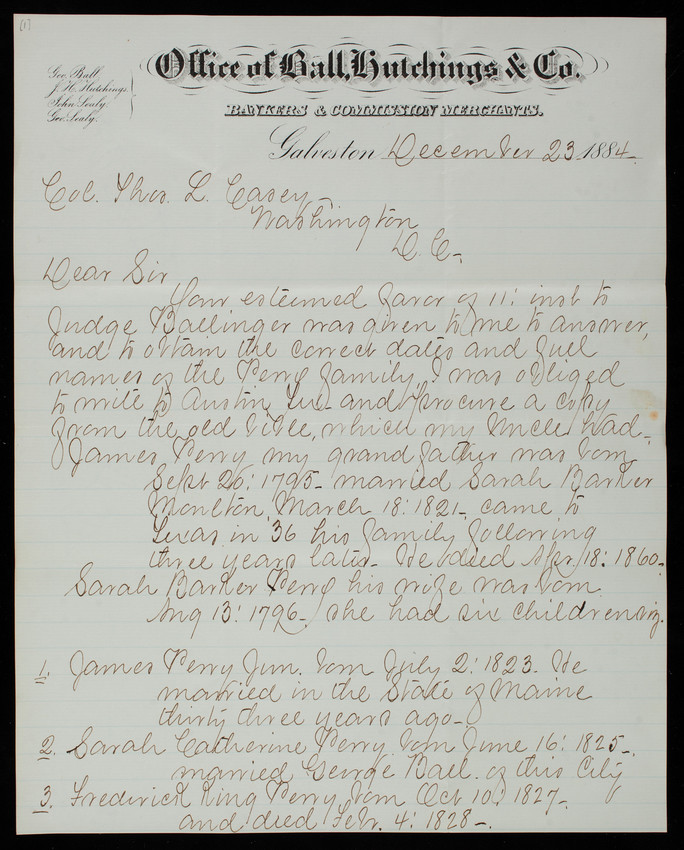 (1)
Office of Ball, Hutchings & Co.
Geo. Ball.
J. H. Hutchings.
John Sealy.
Geo. Sealy.
BANKERS & COMMISSION MERCHANTS.
Galveston December 23 1884.
Col. Thos. L. Casey
Washington
D. C.
Dear Sir
Your esteemed favor of 11: inst to
Judge Ballinger was given to me to answer,
and to obtain the correct dates and full
names of the Perry family, I was obliged
to write to Austin, Tex. and procure a copy
from the old bible, which my Uncle had.
James Perry my grand father was born
Sept 26: 1795. married Sarah Barker
Moulton, March 18: 1821. came to
Texas in '36 his family following
three years later. He died Apr. 18: 1860.
Sarah Barker Perry his wife was born
Aug 13: 1796. she had six children viz.
1. James Perry Jun. born July 2: 1823. He
married in the State of Maine
thirty three years ago.
2. Sarah Catherine Perry. born June 16: 1825.
married George Ball. of this City
3. Frederick King Perry, born Oct 10: 1827.
and died Febr. 4: 1828.